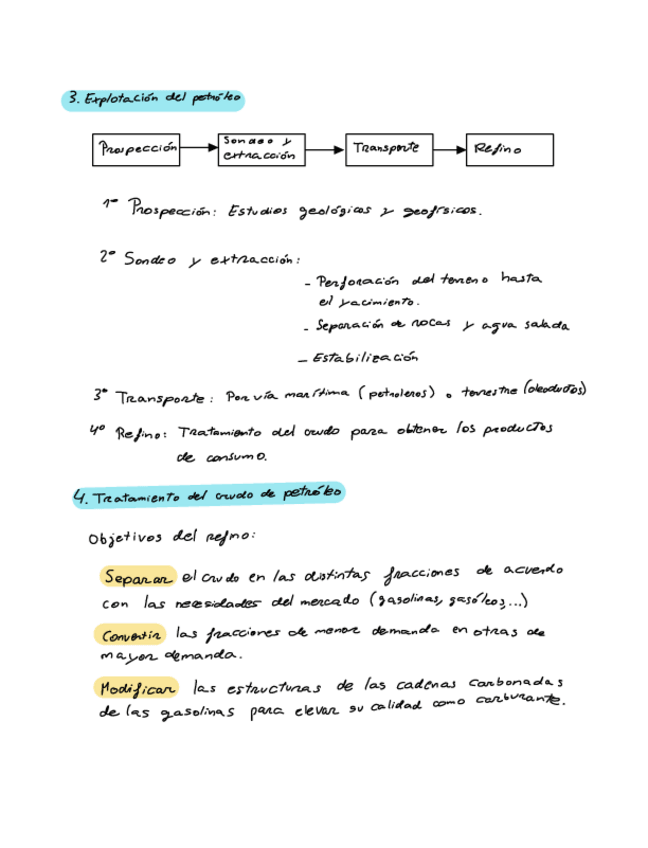 3. Explotación del petróleo
Prospección
Sondeo y
extracción
Transporte
Refino
1º Prospección: Estudios geológicos y geofísicos.
2º Sondeo y extracción:
- Perforación del terreno hasta
el yacimiento.
- Separación de rocas y agua salada
- Estabilización
3º Transporte: Por vía marítima (petroleros) o terrestre (oleoductos)
4º Refino: Tratamiento del crudo para obtener los productos
de consumo.
4. Tratamiento del crudo de petróleo
Objetivos del refino:
Separar el crudo en las distintas fracciones de acuerdo
con las necesidades del mercado (gasolinas, gasóleos,...)
Convertir las fracciones de menor demanda en otras de
mayor demanda.
Modificar las estructuras de las cadenas carbonadas
de las gasolinas para elevar su calidad como carburante.